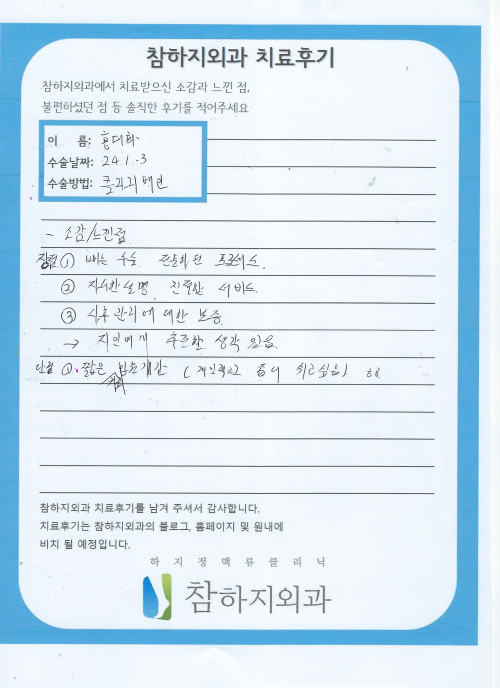 참하지외과 치료후기
참하지외과에서 치료받으신 소감과 느낀 점,
불편하셨던 점 등 솔직한 후기를 적어주세요
이 름: 홍대화
수술날짜: 24.1.3
수술방법: 클라리베인
- 소감/느낀점
장점 ① 빠른 수술. 프로세스.
② 자세한 설명, 친절한 서비스.
③ 사후관리에 대한 보증.
→ 지인에게 추천할 생각 있음.
단점 ①. 짧은 (개인적으로 좀 더 쉬고싶음) ㅎㅎ
참하지외과 치료후기를 남겨 주셔서 감사합니다.
치료후기는 참하지외과의 블로그, 홈페이지 및 원내에
비치 될 예정입니다.
하지정맥류클리닉
참하지외과